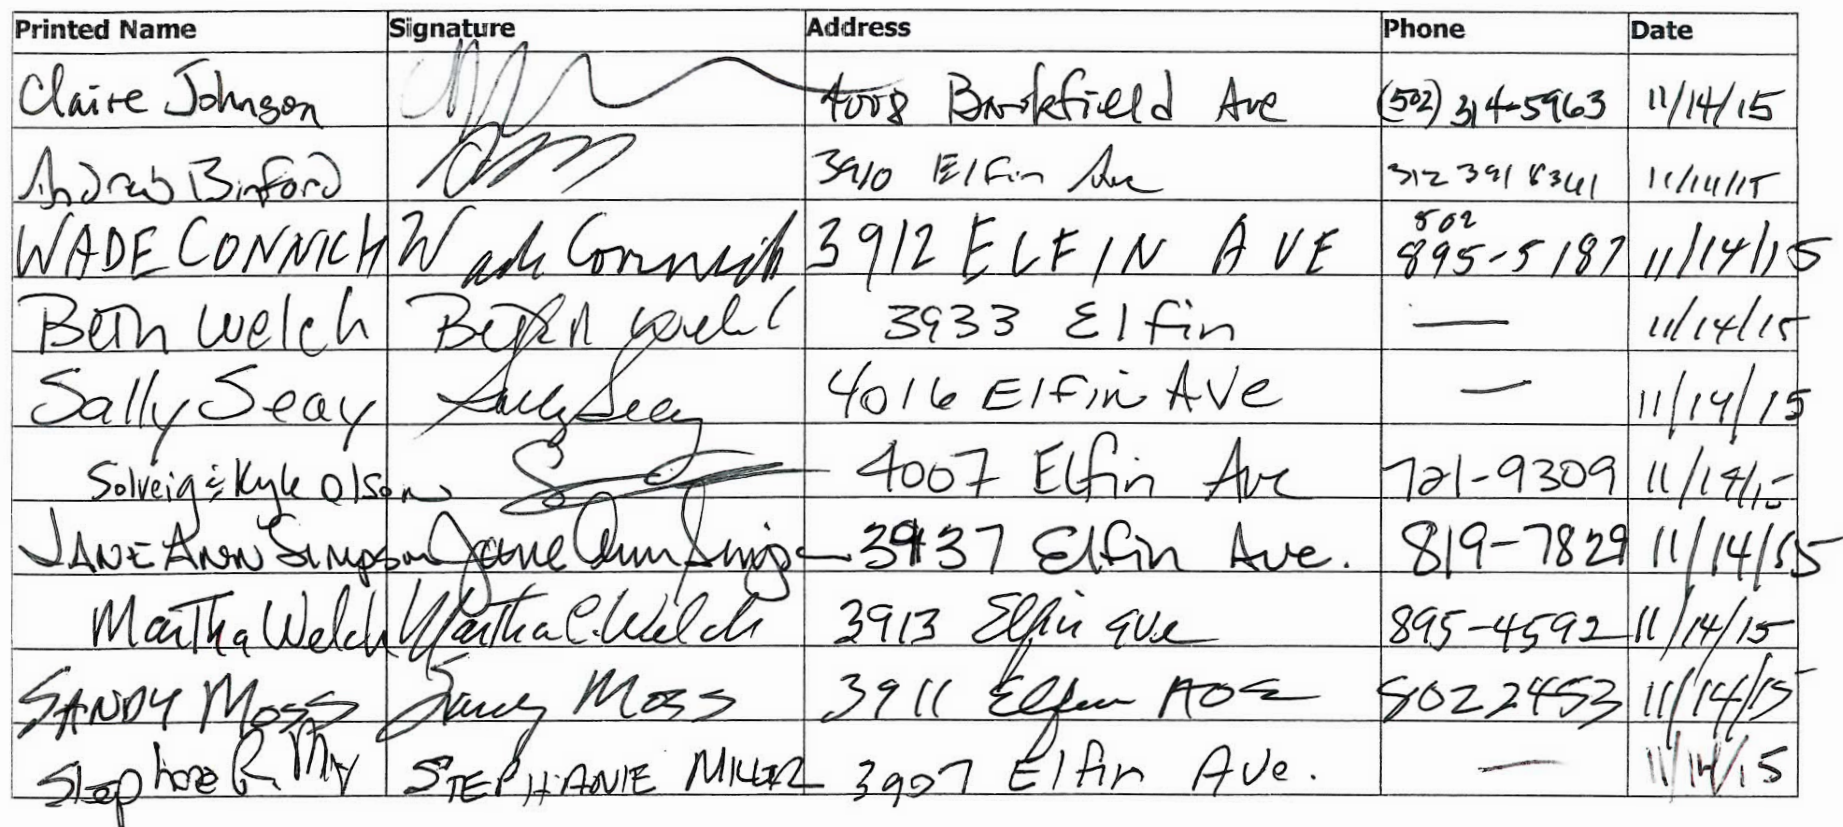 Printed Name Signature Address Phone Date
Claire Johnson 4008 Brookfield Ave (502) 314-5963 11/14/15
Andrew Binford 3910 Elfin Ave 312 391 8361 11/14/15
502
WADE CONNICH Wade Connich 3912 ELFIN AVE 895-5187 11/14/15
Beth Welch Beth Welch 3933 Elfin — 11/14/15
Sally Seay Sally Seay 4016 Elfin AVe — 11/14/15
Solveig & Kyle Olson 4007 Elfin Ave 721-9309 11/14/15
JANE ANN SIMPSON Jane Ann Simps 3937 Elfin Ave. 819-7829 11/14/15
Martha Welch Martha C. Welch 3913 Elfin ave 895-4592 11/14/15
SANDY MOSS Sandy Moss 3911 Elfin 8022453 11/14/15
STEPHANIE MILLER 3907 Elfin AVe. — 11/14/15